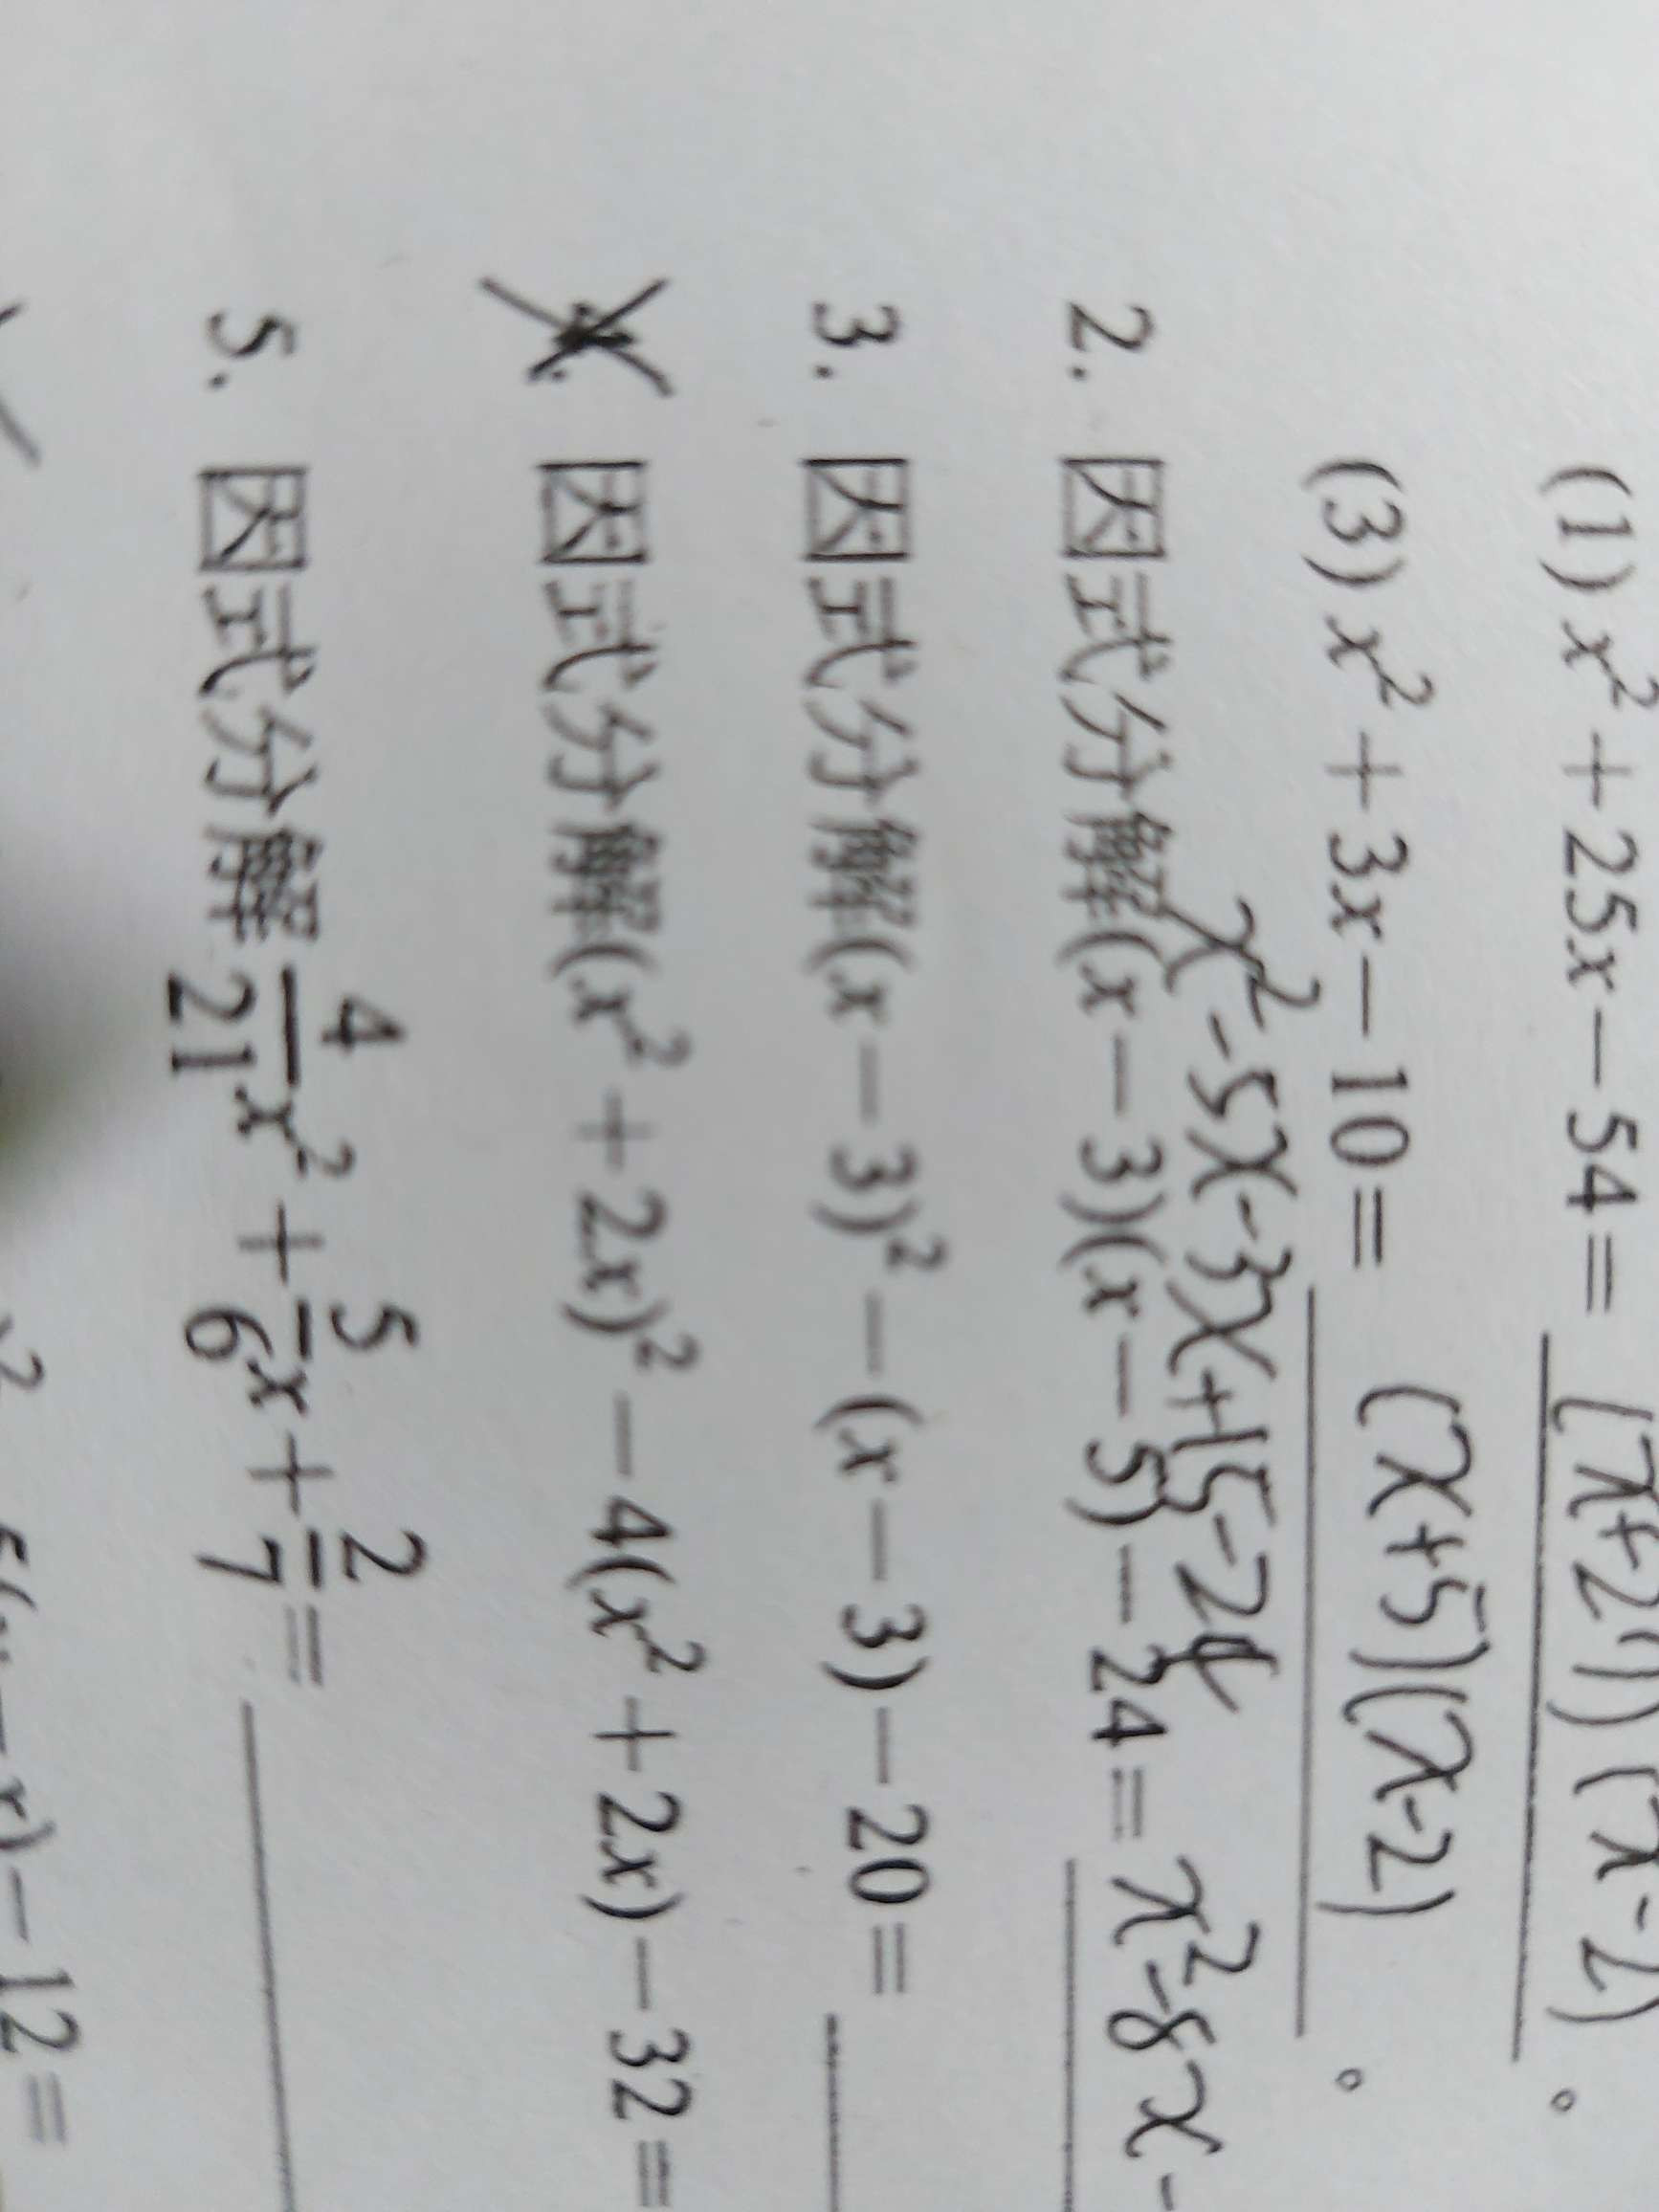 (1) x² + 25x − 54 = (x+27)(x-2)。
(3) x² + 3x − 10 = (x+5)(x-2)。
x²-5x-3x+15-24
2. 因式分解(x − 3)(x − 5) − 24 = x²-8x-
3. 因式分解(x − 3)² − (x − 3) − 20 =
因式分解(x² + 2x)² − 4(x² + 2x) − 32 =
5. 因式分解 4/21 x² + 5/6 x + 2/7 =
− 12 =